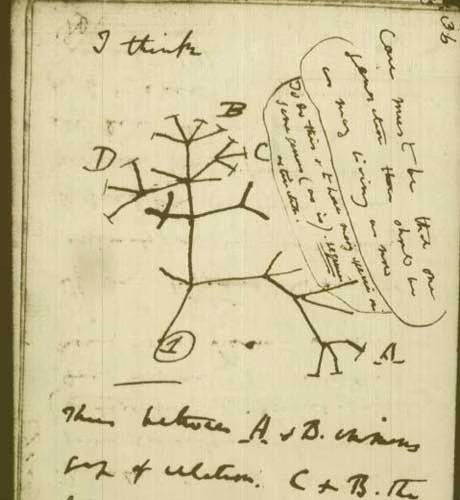 36
I think
Case must be that one
generation then should be
as many living as now
To do this & to have many species in
same genus (as is). requires
extinction.
B
D
C
A
1
Thus between A & B. immens
gap of relation. C & B. the